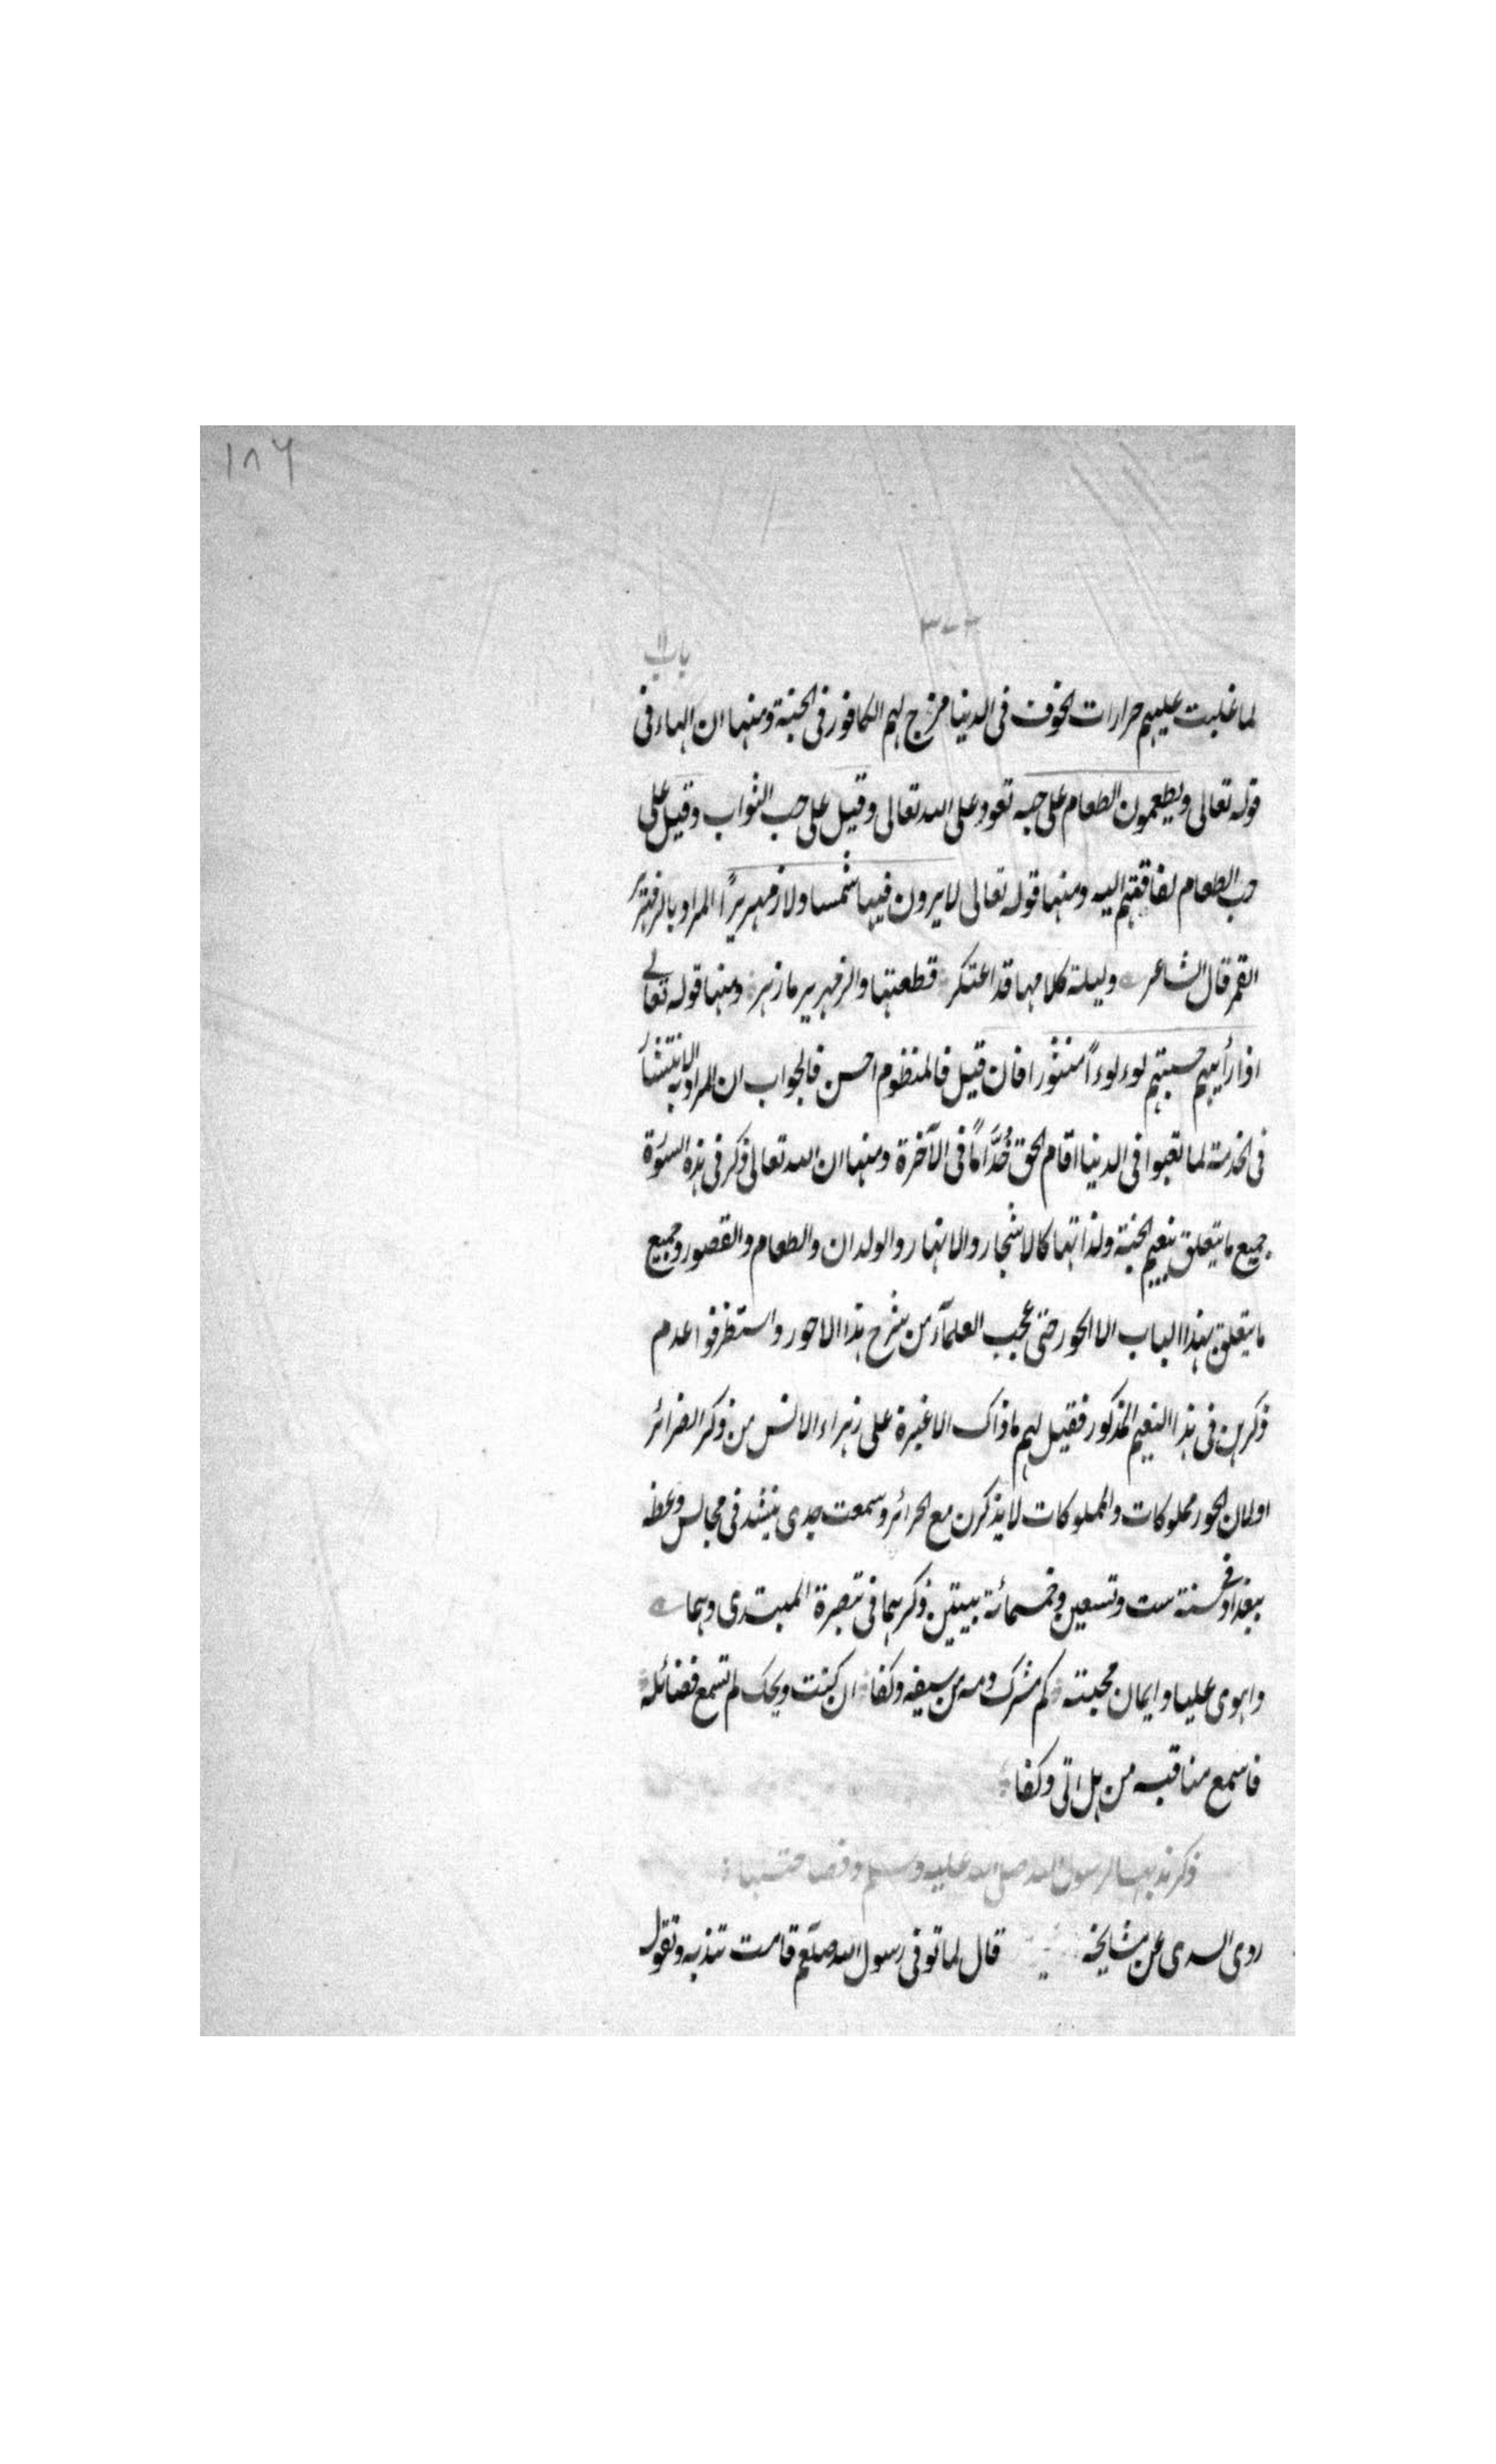 ١٨٦
باب ١١
لما غلبت عليهم حرارات الخوف فى الدنيا مزج لهم الكافور فى الجنة ومنها ان الهاء فى
قوله تعالى ويطعمون الطعام على حبه تعود على الله تعالى وقيل على حب الثواب وقيل على
حب الطعام لفاقتهم اليه ومنها قوله تعالى لا يرون فيها شمسا ولا زمهريرًا المراد بالزمهرير
القمر قال الشاعر وليلة ظلامها قد اعتكر قطعتها والزمهرير ما زهر ومنها قوله تعالى
اذا رأيتهم حسبتهم لوءلوءاً منثورا فان قيل فالمنظوم احسن فالجواب ان المراد به الانتشار
فى الخدمة لما تعبوا فى الدنيا اقام الحق خُدَّامًا فى الآخرة ومنها ان الله تعالى ذكر فى هذه السورة
جميع ما يتعلق بنعيم الجنة ولذاتها كالاشجار والانهار والولدان والطعام والقصور وجميع
ما يتعلق بهذا الباب الا الحور حتى عجب العلمآء من شرح هذا الا حور واستظرفوا عدم
ذكرهن فى هذا النعيم المذكور فقيل لهم ما ذاك الا غيرة على زهراء الانس من ذكر الضرائر
اولان الحور مملوكات والمملوكات لا يذكرن مع الحرائر وسمعت جدى ينشد فى مجالس وعظه
ببغداد فى سنة ست وتسعين وخمسمائة بيتين ذكرهما فى تبصرة المبتدى وهما
واهوى عليا وايمان محبته كم مشرك دمه من سيفه وكفا ان كنت ويحك لم تسمع فضائله
فاسمع مناقبه من هل اتى وكفا
ذكر ندبها لرسول الله صلى الله عليه وسلم وفصاحتها
روى السدى عن مشايخه قال لما توفى رسول الله صلعم قامت تندبه وتقول